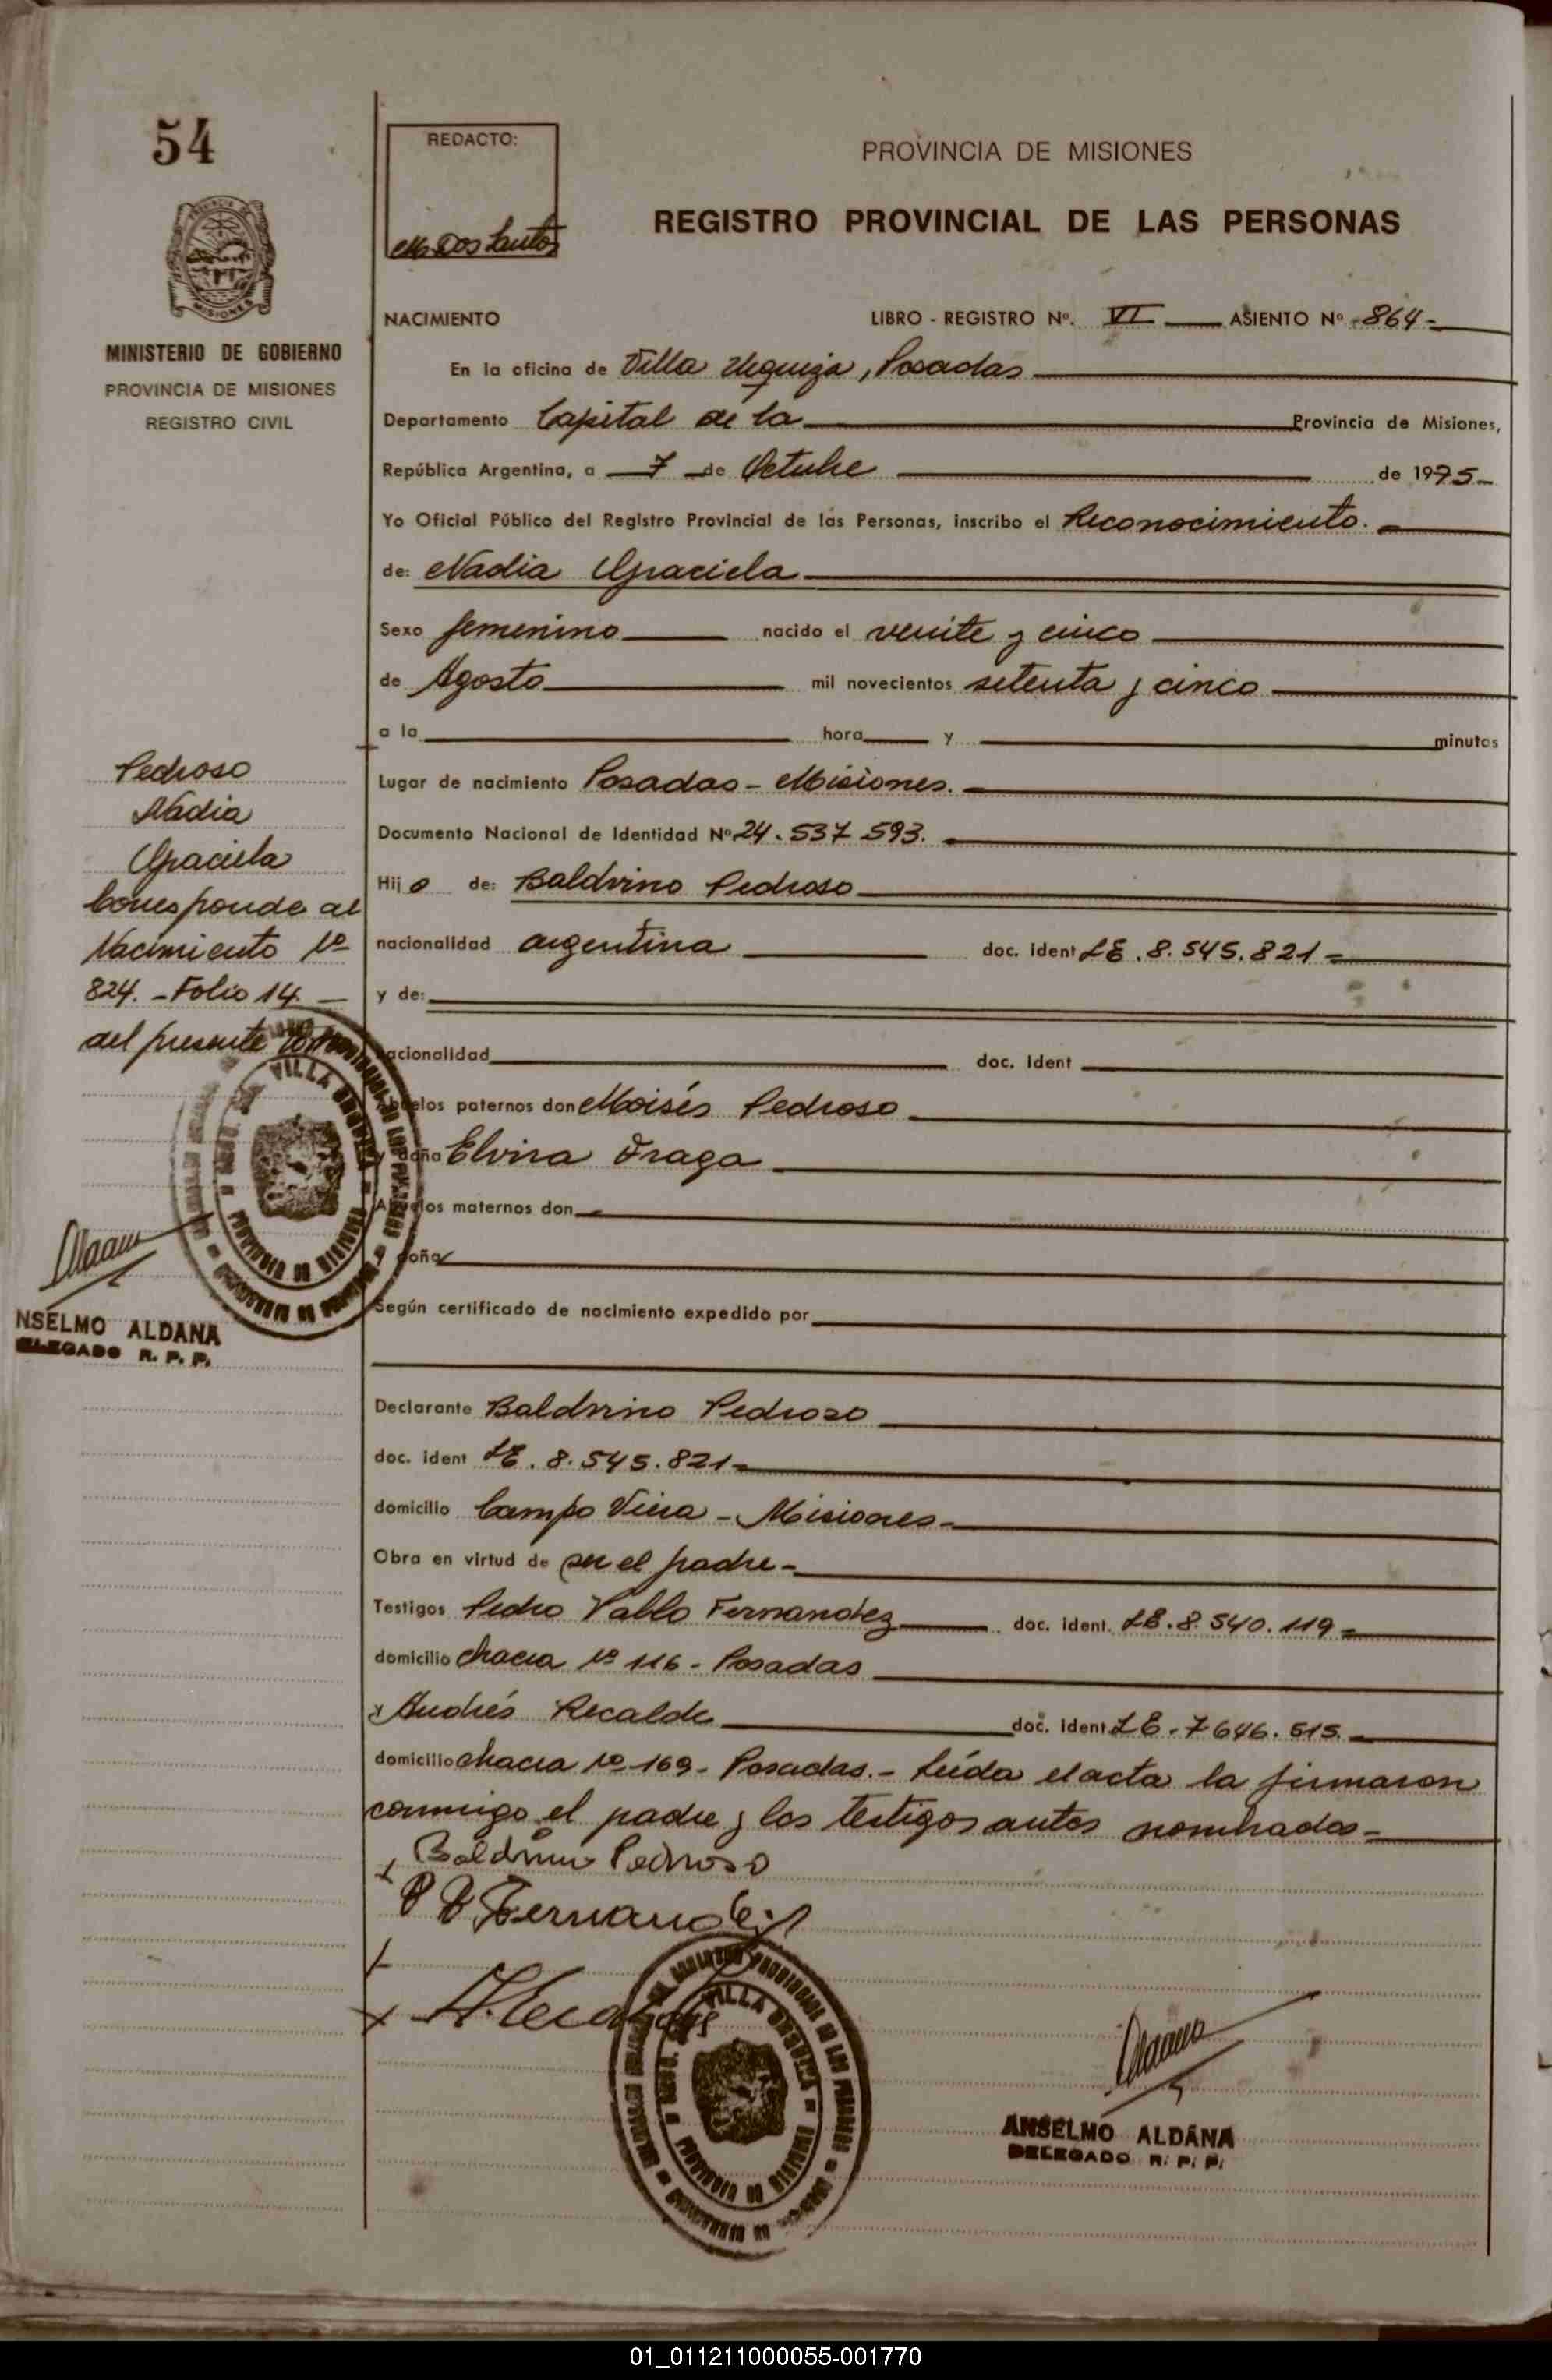 54
REDACTO:
M. Dos Santos
PROVINCIA DE MISIONES
REGISTRO PROVINCIAL DE LAS PERSONAS
MISIONES
MINISTERIO DE GOBIERNO
PROVINCIA DE MISIONES
REGISTRO CIVIL
NACIMIENTO LIBRO - REGISTRO Nº. VI ASIENTO Nº -864-
En la oficina de Villa Urquiza, Posadas
Departamento Capital de la Provincia de Misiones,
República Argentina, a 7 de Octubre de 1975-
Yo Oficial Público del Registro Provincial de las Personas, inscribo el Reconocimiento.
de: Nadia Graciela
Sexo femenino nacido el veinte y cinco
de Agosto mil novecientos setenta y cinco
a la hora y minutos
Lugar de nacimiento Posadas - Misiones.
Documento Nacional de Identidad Nº 24.537.593.
Hijo de: Baldvino Pedroso
nacionalidad argentina doc. ident LE. 8.545.821-
y de:
nacionalidad doc. ident
Abuelos paternos don Moisés Pedroso
y doña Elvira Fraga
Abuelos maternos don
y doña
Según certificado de nacimiento expedido por
Declarante Baldvino Pedroso
doc. ident LE. 8.545.821-
domicilio Campo Viera - Misiones-
Obra en virtud de ser el padre-
Testigos Pedro Pablo Fernandez doc. ident. LE. 8.540.119-
domicilio chacra Nº 116 - Posadas
y Andrés Recalde doc. ident LE. 7646.515.
domicilio chacra Nº 169 - Posadas.- Leída el acta la firmaron
conmigo el padre y los testigos antes nombrados-
Baldvino Pedroso
P P Fernandez
VILLA URQUIZA
PROVINCIA DE MISIONES
ANSELMO ALDANA
DELEGADO R. P. P.
Pedroso
Nadia
Graciela
Corresponde al
Nacimiento Nº
824. - Folio 14.
del presente
VILLA URQUIZA
PROVINCIA DE MISIONES
NSELMO ALDANA
ELEGADO R. P. P.
01_011211000055-001770